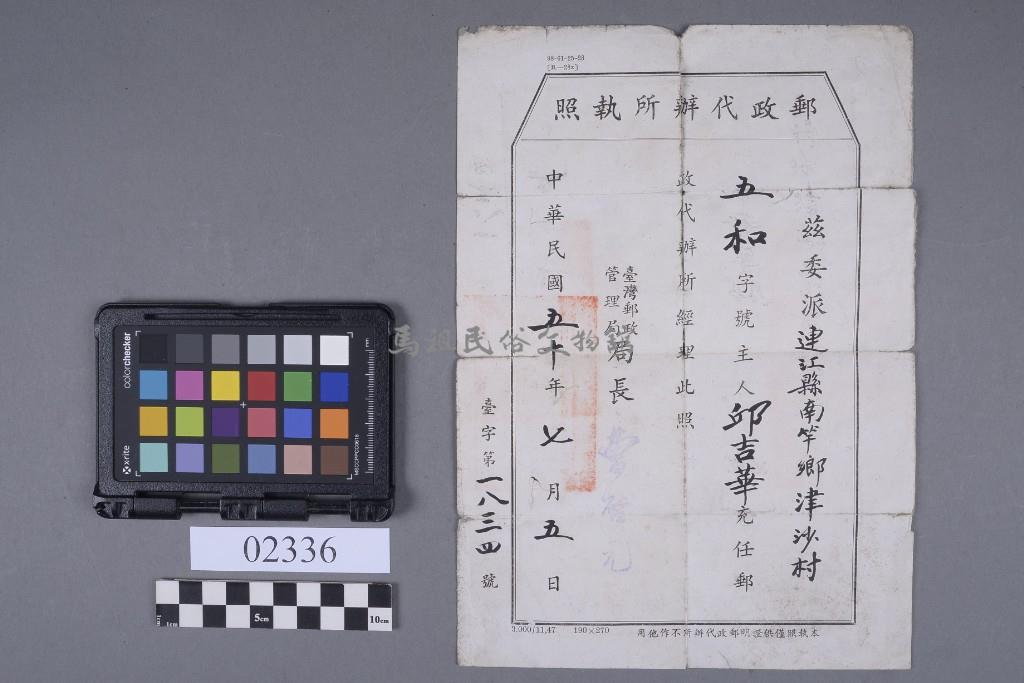 98-01-25-23
郵政代辦所執照
茲委派連江縣南竿鄉津沙村
五和字號主人邱吉華充任郵
政代辦所經理此照
臺灣郵政
管理局
局長
中華民國五十年七月五日
臺字第一八三四號
3,000/11,47 190×270
本執照僅供證明郵政代辦所不作他用
馬祖民俗文物館
colorchecker
x-rite
mm
02336
5cm
10cm